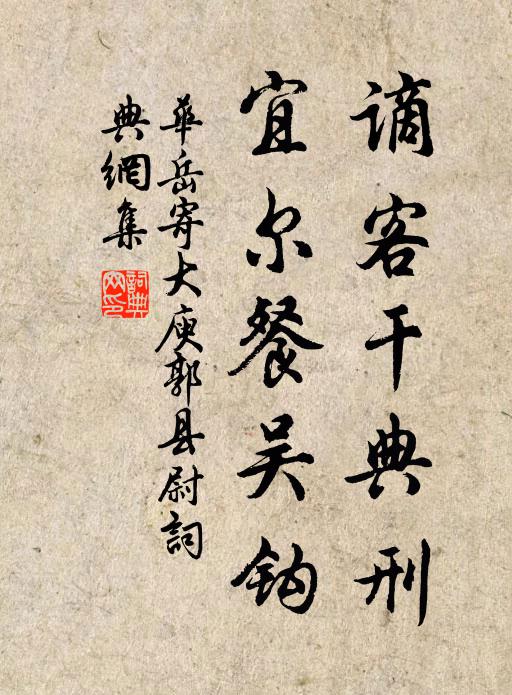 谪客干典刑
宜尔餐吴钩
華岳寄大庾郭县尉詞
典網集
詞典
网印